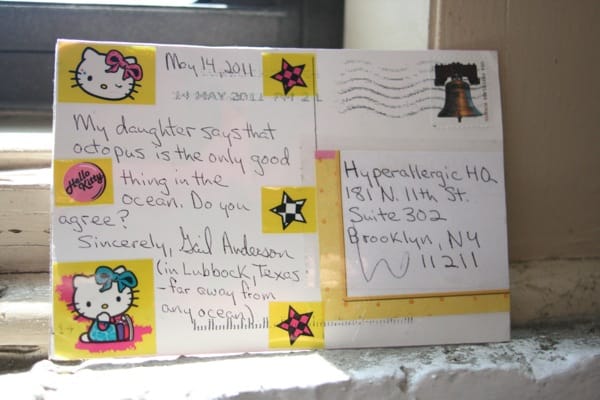 May 14, 2011
14 MAY 2011 PM 2 L
My daughter says that
octopus is the only good
Hello
Kitty
thing in the
ocean. Do you
agree?
Sincerely, Gail Anderson
(in Lubbock, Texas
- far away from
any ocean)
Hyperallergic HQ
181 N. 11th St.
Suite 302
Brooklyn, NY
11211